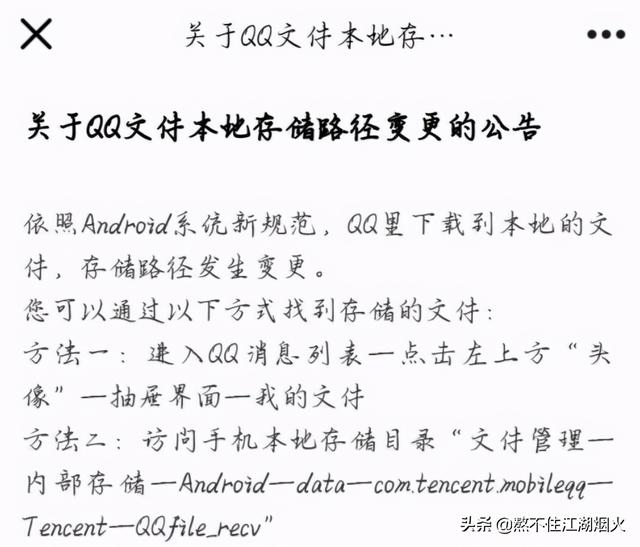 关于QQ文件本地存…
关于QQ文件本地存储路径变更的公告
依照Android系统新规范，QQ里下载到本地的文
件，存储路径发生变更。
您可以通过以下方式找到存储的文件：
方法一：进入QQ消息列表—点击左上方“头
像”—抽屉界面—我的文件
方法二：访问手机本地存储目录“文件管理—
内部存储—Android—data—com.tencent.mobileqq—
Tencent—QQfile_recv”
头条@熬不住江湖烟火